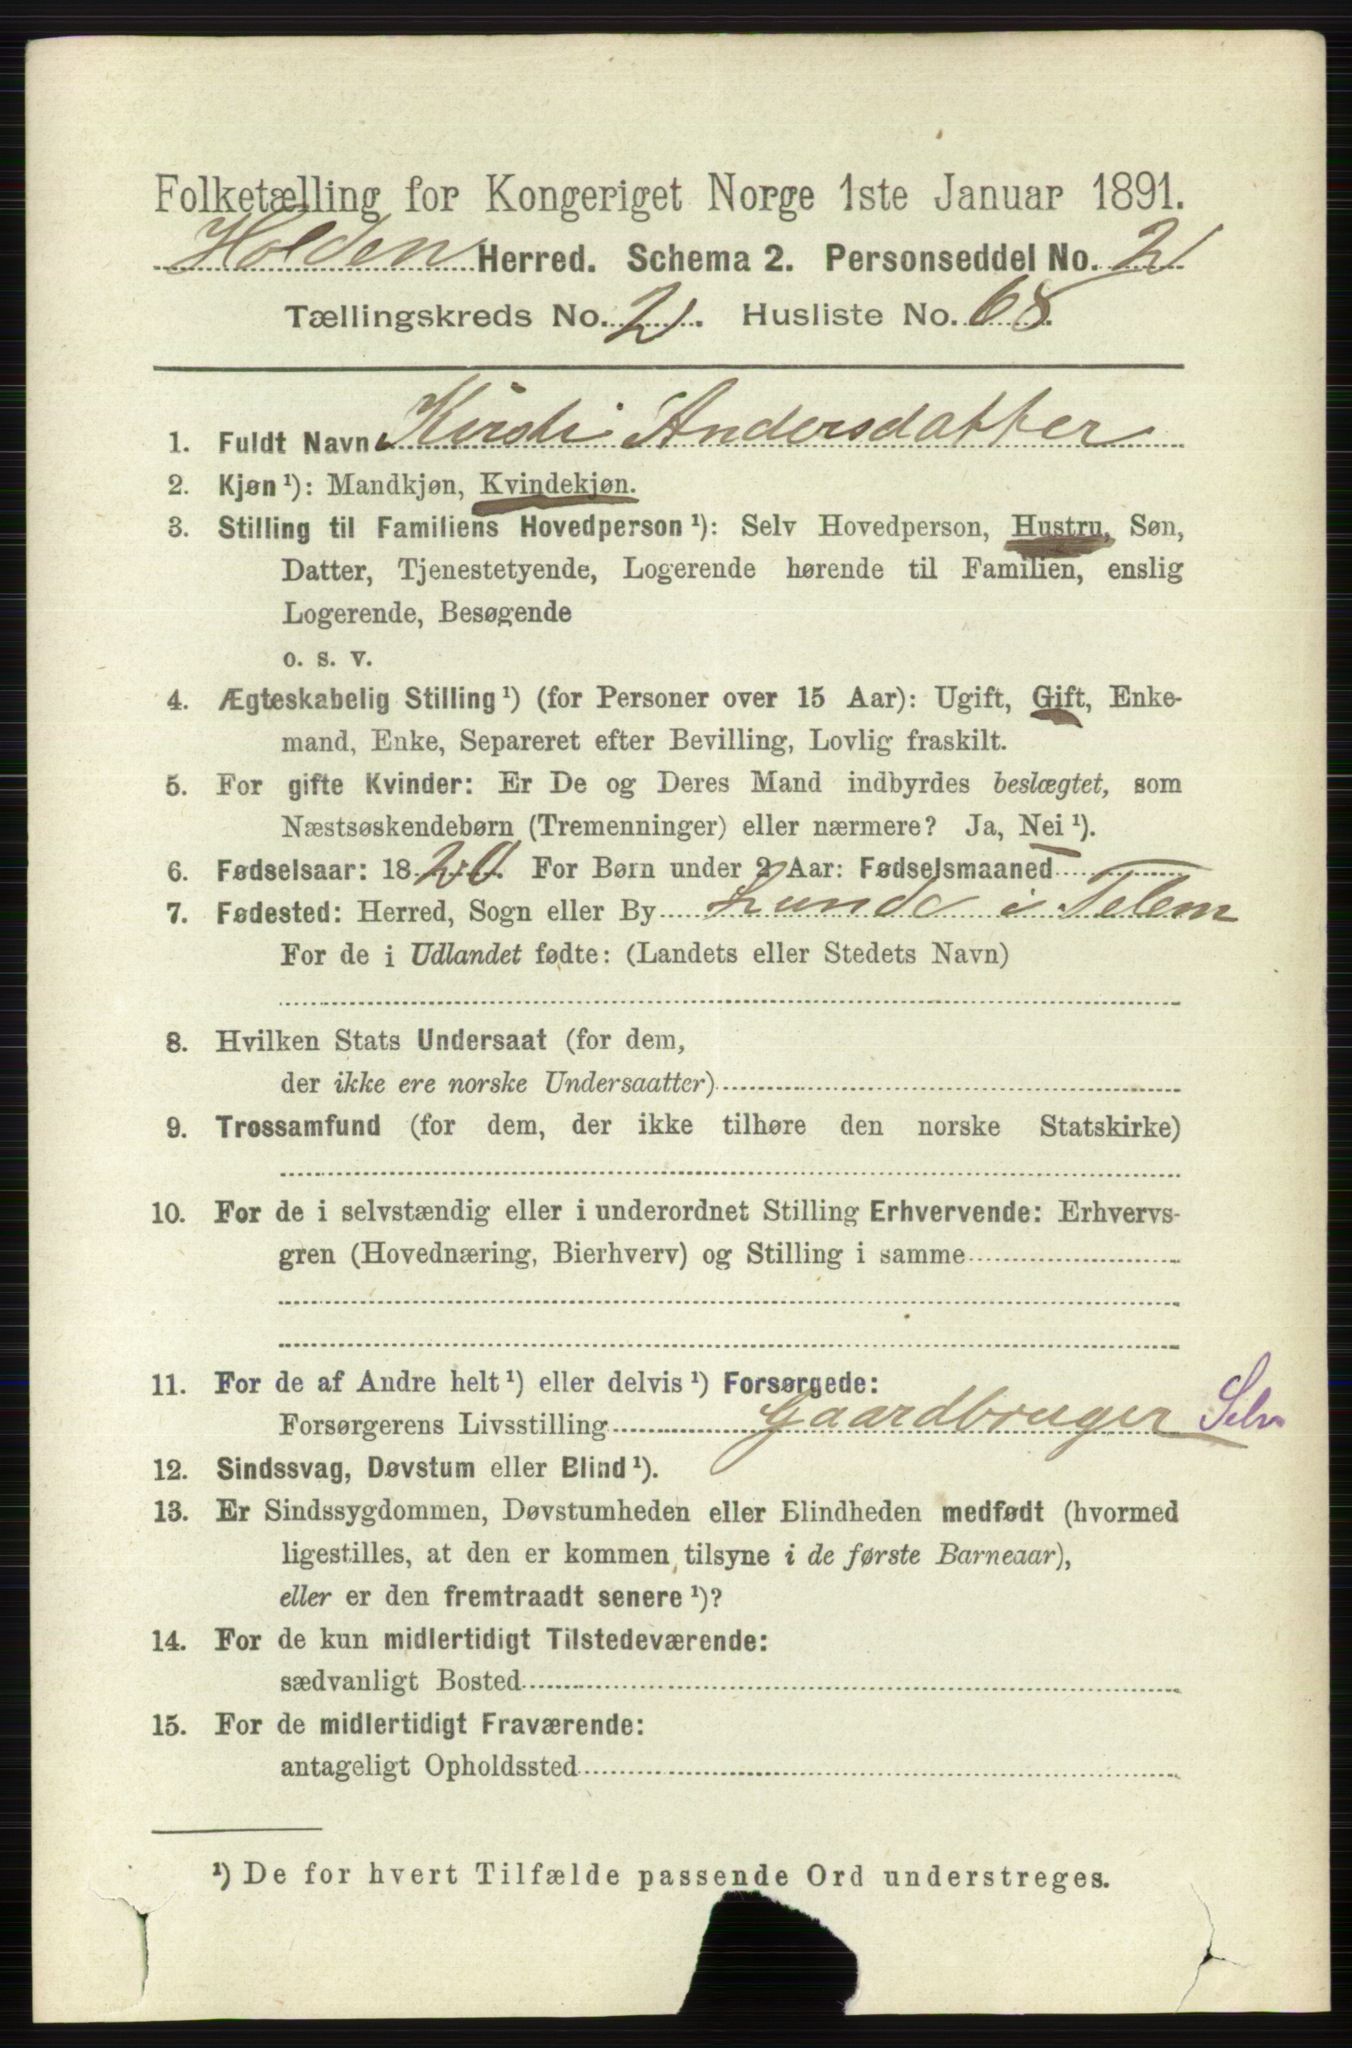 Folketælling for Kongeriget Norge 1ste Januar 1891.
Holden Herred. Schema 2. Personseddel No. 2
Tællingskreds No. 2. Husliste No. 68.
1. Fuldt Navn Kirsti Andersdatter
2. Kjøn ¹): Mandkjøn, Kvindekjøn.
3. Stilling til Familiens Hovedperson ¹): Selv Hovedperson, Hustru, Søn,
Datter, Tjenestetyende, Logerende hørende til Familien, enslig
Logerende, Besøgende
o. s. v.
4. Ægteskabelig Stilling ¹) (for Personer over 15 Aar): Ugift, Gift, Enke-
mand, Enke, Separeret efter Bevilling, Lovlig fraskilt.
5. For gifte Kvinder: Er De og Deres Mand indbyrdes beslægtet, som
Næstsøskendebørn (Tremenninger) eller nærmere? Ja, Nei ¹).
6. Fødselsaar: 1820. For Børn under 2 Aar: Fødselsmaaned
7. Fødested: Herred, Sogn eller By Lunde i Telem
For de i Udlandet fødte: (Landets eller Stedets Navn)
8. Hvilken Stats Undersaat (for dem,
der ikke ere norske Undersaatter)
9. Trossamfund (for dem, der ikke tilhøre den norske Statskirke)
10. For de i selvstændig eller i underordnet Stilling Erhvervende: Erhvervs-
gren (Hovednæring, Bierhverv) og Stilling i samme
11. For de af Andre helt ¹) eller delvis ¹) Forsørgede:
Forsørgerens Livsstilling Gaardbruger Selv
12. Sindssvag, Døvstum eller Blind ¹).
13. Er Sindssygdommen, Døvstumheden eller Blindheden medfødt (hvormed
ligestilles, at den er kommen tilsyne i de første Barneaar),
eller er den fremtraadt senere ¹)?
14. For de kun midlertidigt Tilstedeværende:
sædvanligt Bosted
15. For de midlertidigt Fraværende:
antageligt Opholdssted
¹) De for hvert Tilfælde passende Ord understreges.